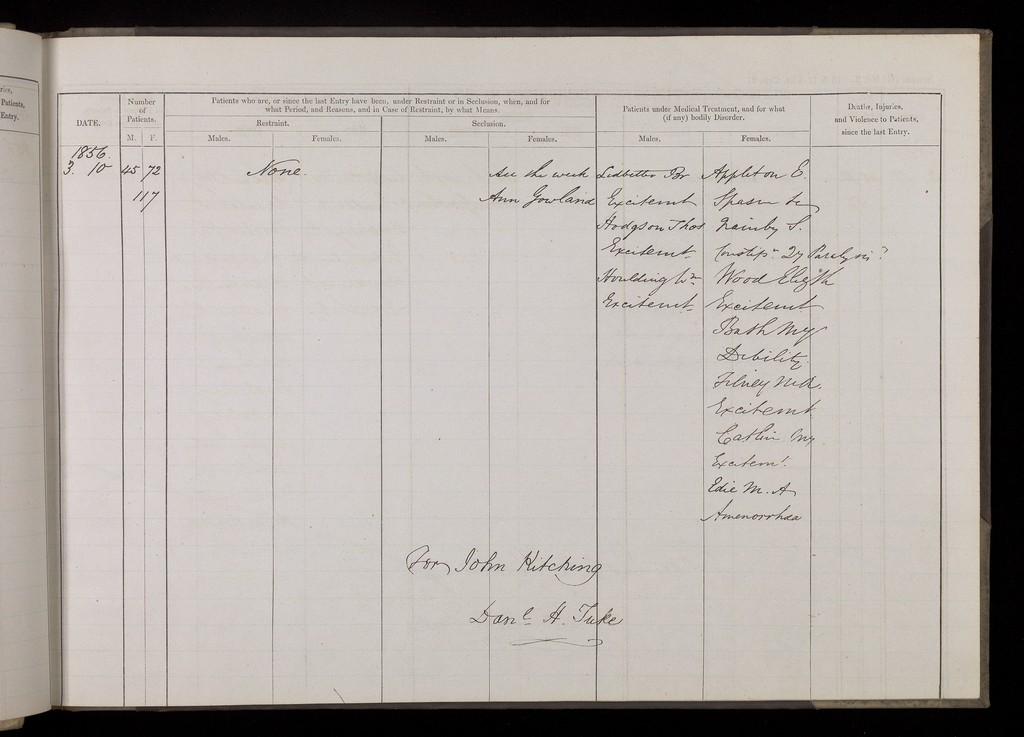 ries,
Patients,
Entry.
DATE.
Number
of
Patients.
M. F.
Patients who are, or since the last Entry have been, under Restraint or in Seclusion, when, and for
what Period, and Reasons, and in Case of Restraint, by what Means.
Restraint.
Seclusion.
Males. Females. Males. Females.
Patients under Medical Treatment, and for what
(if any) bodily Disorder.
Males. Females.
Deaths, Injuries,
and Violence to Patients,
since the last Entry.
1856.
3. 10 45 72 None. All the week Ledbetter Br Appleton E.
117 Ann Gowland Excitemt Spasm
Hodgson Thos S.
Excitemt Constipn Paralysis?
Houlding Wm Wood Elizth
Excitemt Excitemt
Bath My
Debility
M.A.
Excitemt
Catlin My
Excitemt.
Edie M. A
Amenorrhœa
For John Kitching
Danl H. Tuke